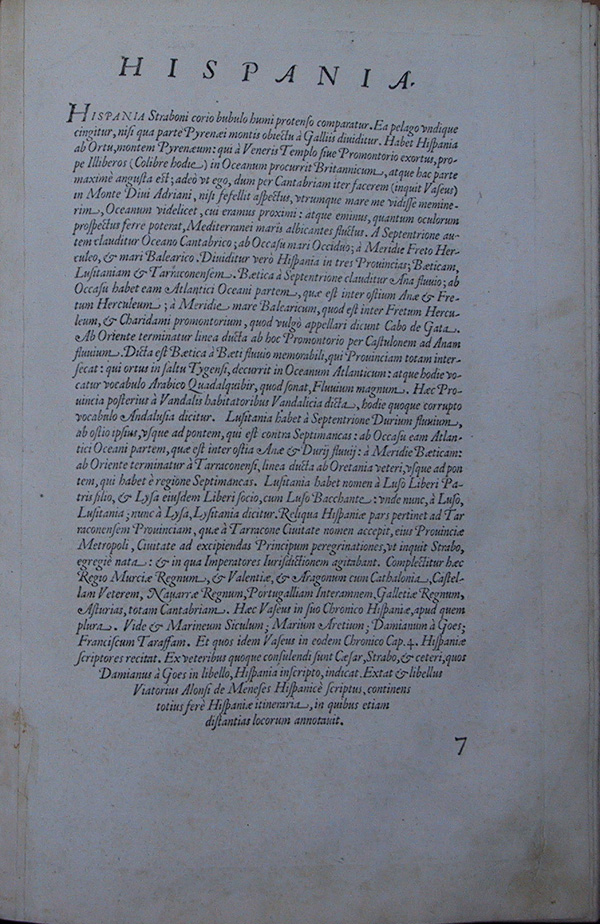 HISPANIA.
HISPANIA Straboni corio bubulo humi protenso comparatur. Ea pelago vndique
cingitur, nisi qua parte Pyrenæi montis obiectu à Galliis diuiditur. Habet Hispania
ab Ortu, montem Pyrenæum: qui à Veneris Templo siue Promontorio exortus, pro-
pe Illiberos (Colibre hodie) in Oceanum procurrit Britannicum, atque hac parte
maximè angusta est; adeò vt ego, dum per Cantabriam iter facerem (inquit Vaseus)
in Monte Diui Adriani, nisi fefellit aspectus, vtrumque mare me vidisse memine-
rim, Oceanum videlicet, cui eramus proximi: atque eminus, quantum oculorum
prospectus ferre poterat, Mediterranei maris albicantes fluctus. A Septentrione au-
tem clauditur Oceano Cantabrico; ab Occasu mari Occiduo; à Meridie Freto Her-
culeo, & mari Balearico. Diuiditur verò Hispania in tres Prouincias; Bæticam,
Lusitaniam & Tarraconensem. Bætica à Septentrione clauditur Ana fluuio; ab
Occasu habet eam Atlantici Oceani partem, quæ est inter ostium Anæ & Fre-
tum Herculeum; à Meridie mare Balearicum, quod est inter Fretum Hercu-
leum, & Charidami promontorium, quod vulgò appellari dicunt Cabo de Gata.
Ab Oriente terminatur linea ducta ab hoc Promontorio per Castulonem ad Anam
fluuium. Dicta est Bætica à Bæti fluuio memorabili, qui Prouinciam totam inter-
secat: qui ortus in saltu Tygensi, decurrit in Oceanum Atlanticum: atque hodie vo-
catur vocabulo Arabico Quadalquibir, quod sonat, Fluuium magnum. Hæc Pro-
uincia posterius à Vandalis habitatoribus Vandalicia dicta, hodie quoque corrupto
vocabulo Andalusia dicitur. Lusitania habet à Septentrione Durium fluuium,
ab ostio ipsius, vsque ad pontem, qui est contra Septimancas: ab Occasu eam Atlan-
tici Oceani partem, quæ est inter ostia Anæ & Durij fluuij: à Meridie Bæticam:
ab Oriente terminatur à Tarraconensi, linea ducta ab Oretania veteri, vsque ad pon
tem, qui habet è regione Septimancas. Lusitania habet nomen à Luso Liberi Pa-
tris filio, & Lysa eiusdem Liberi socio, cum Luso Bacchante: vnde nunc, à Luso,
Lusitania; nunc à Lysa, Lysitania dicitur. Reliqua Hispaniæ pars pertinet ad Tar
raconensem Prouinciam, quæ à Tarracone Ciuitate nomen accepit, eius Prouinciæ
Metropoli, Ciuitate ad excipiendas Principum peregrinationes, vt inquit Strabo,
egregiè nata: & in qua Imperatores Iurisdictionem agitabant. Complectitur hæc
Regio Murciæ Regnum, & Valentiæ, & Aragonum cum Cathalonia, Castel-
lam Veterem, Nauarræ Regnum, Portugalliam Interamnem, Galletiæ Regnum,
Asturias, totam Cantabriam. Hæc Vaseus in suo Chronico Hispaniæ, apud quem
plura. Vide & Marineum Siculum; Marium Aretium; Damianum à Goes;
Franciscum Taraffam. Et quos idem Vaseus in eodem Chronico Cap. 4. Hispaniæ
scriptores recitat. Ex veteribus quoque consulendi sunt Cæsar, Strabo, & ceteri, quos
Damianus à Goes in libello, Hispania inscripto, indicat. Extat & libellus
Viatorius Alonsi de Meneses Hispanicè scriptus, continens
totius ferè Hispaniæ itineraria, in quibus etiam
distantias locorum annotauit.
7